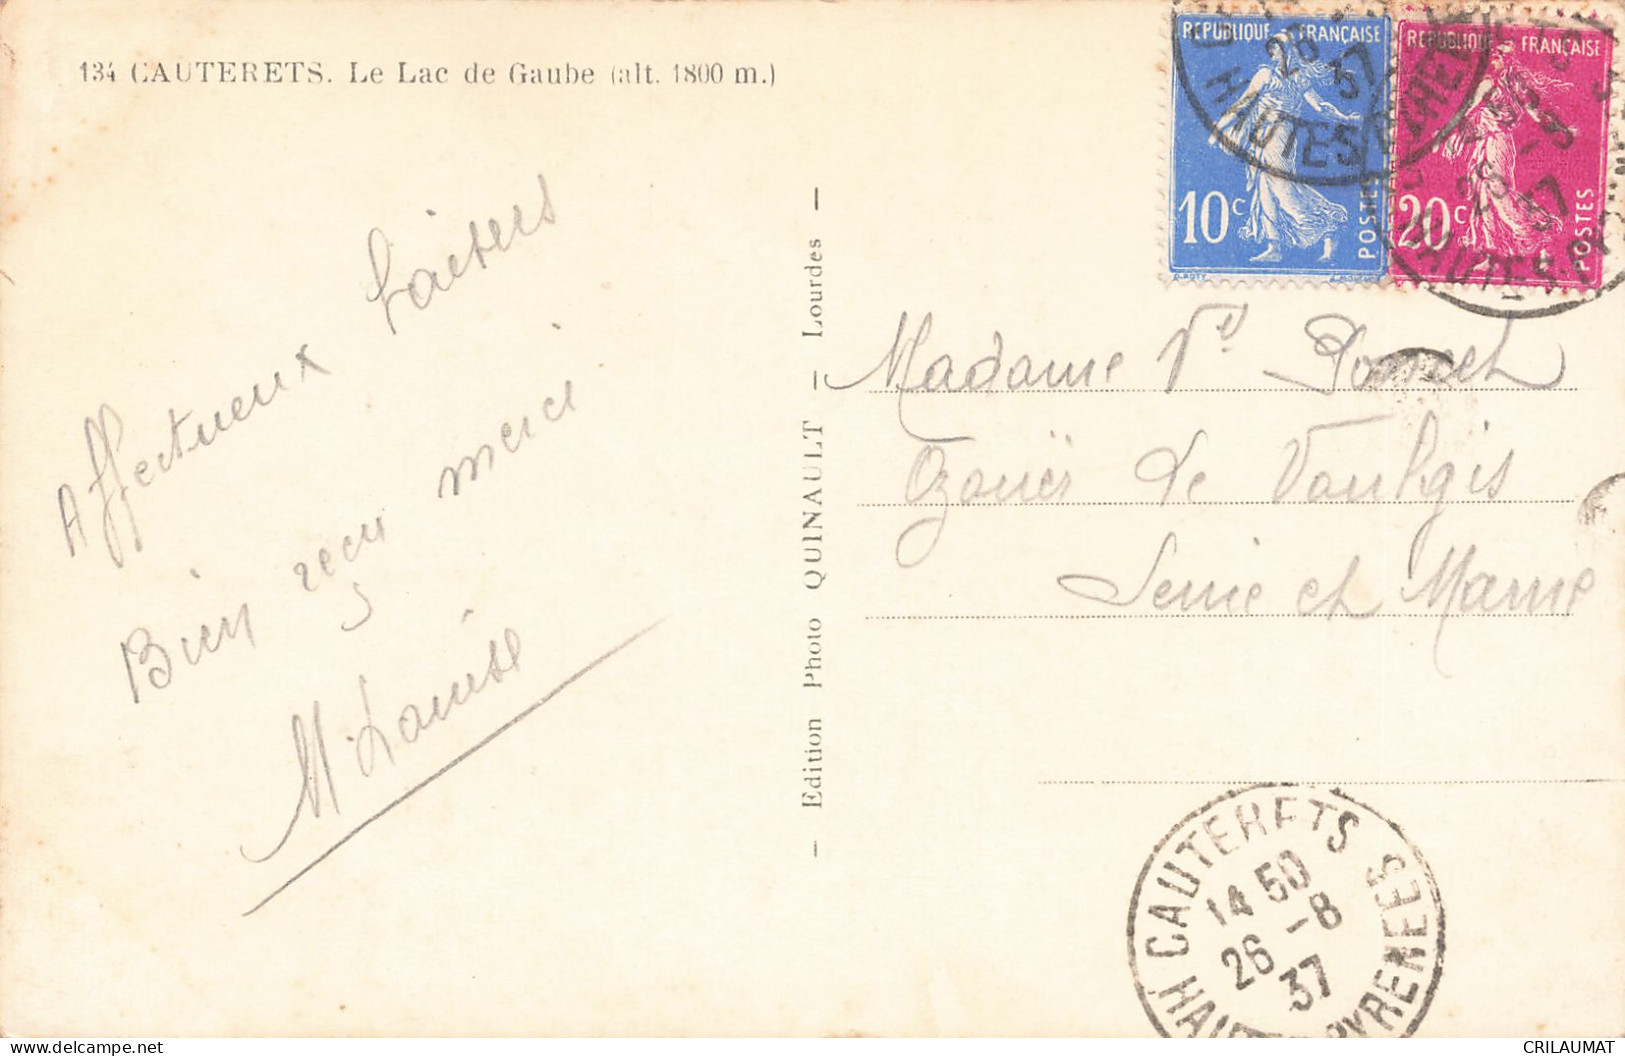 134 CAUTERETS. Le Lac de Gaube (alt. 1800 m.)
Affectueux baisers
Bien reçu merci
M. Louise
— Edition Photo QUINAULT — Lourdes —
REPUBLIQUE FRANÇAISE
10c
POSTES
REPUBLIQUE FRANÇAISE
20c
POSTES
26
37
HAUTES PYRENEES
-8
26
37
HAUTES
Madame Vve
Ozouër le Voulgis
Seine et Marne
CAUTERETS
14 50
26 -8
37
HAUTES PYRENEES
delcampe.net
CRILAUMAT